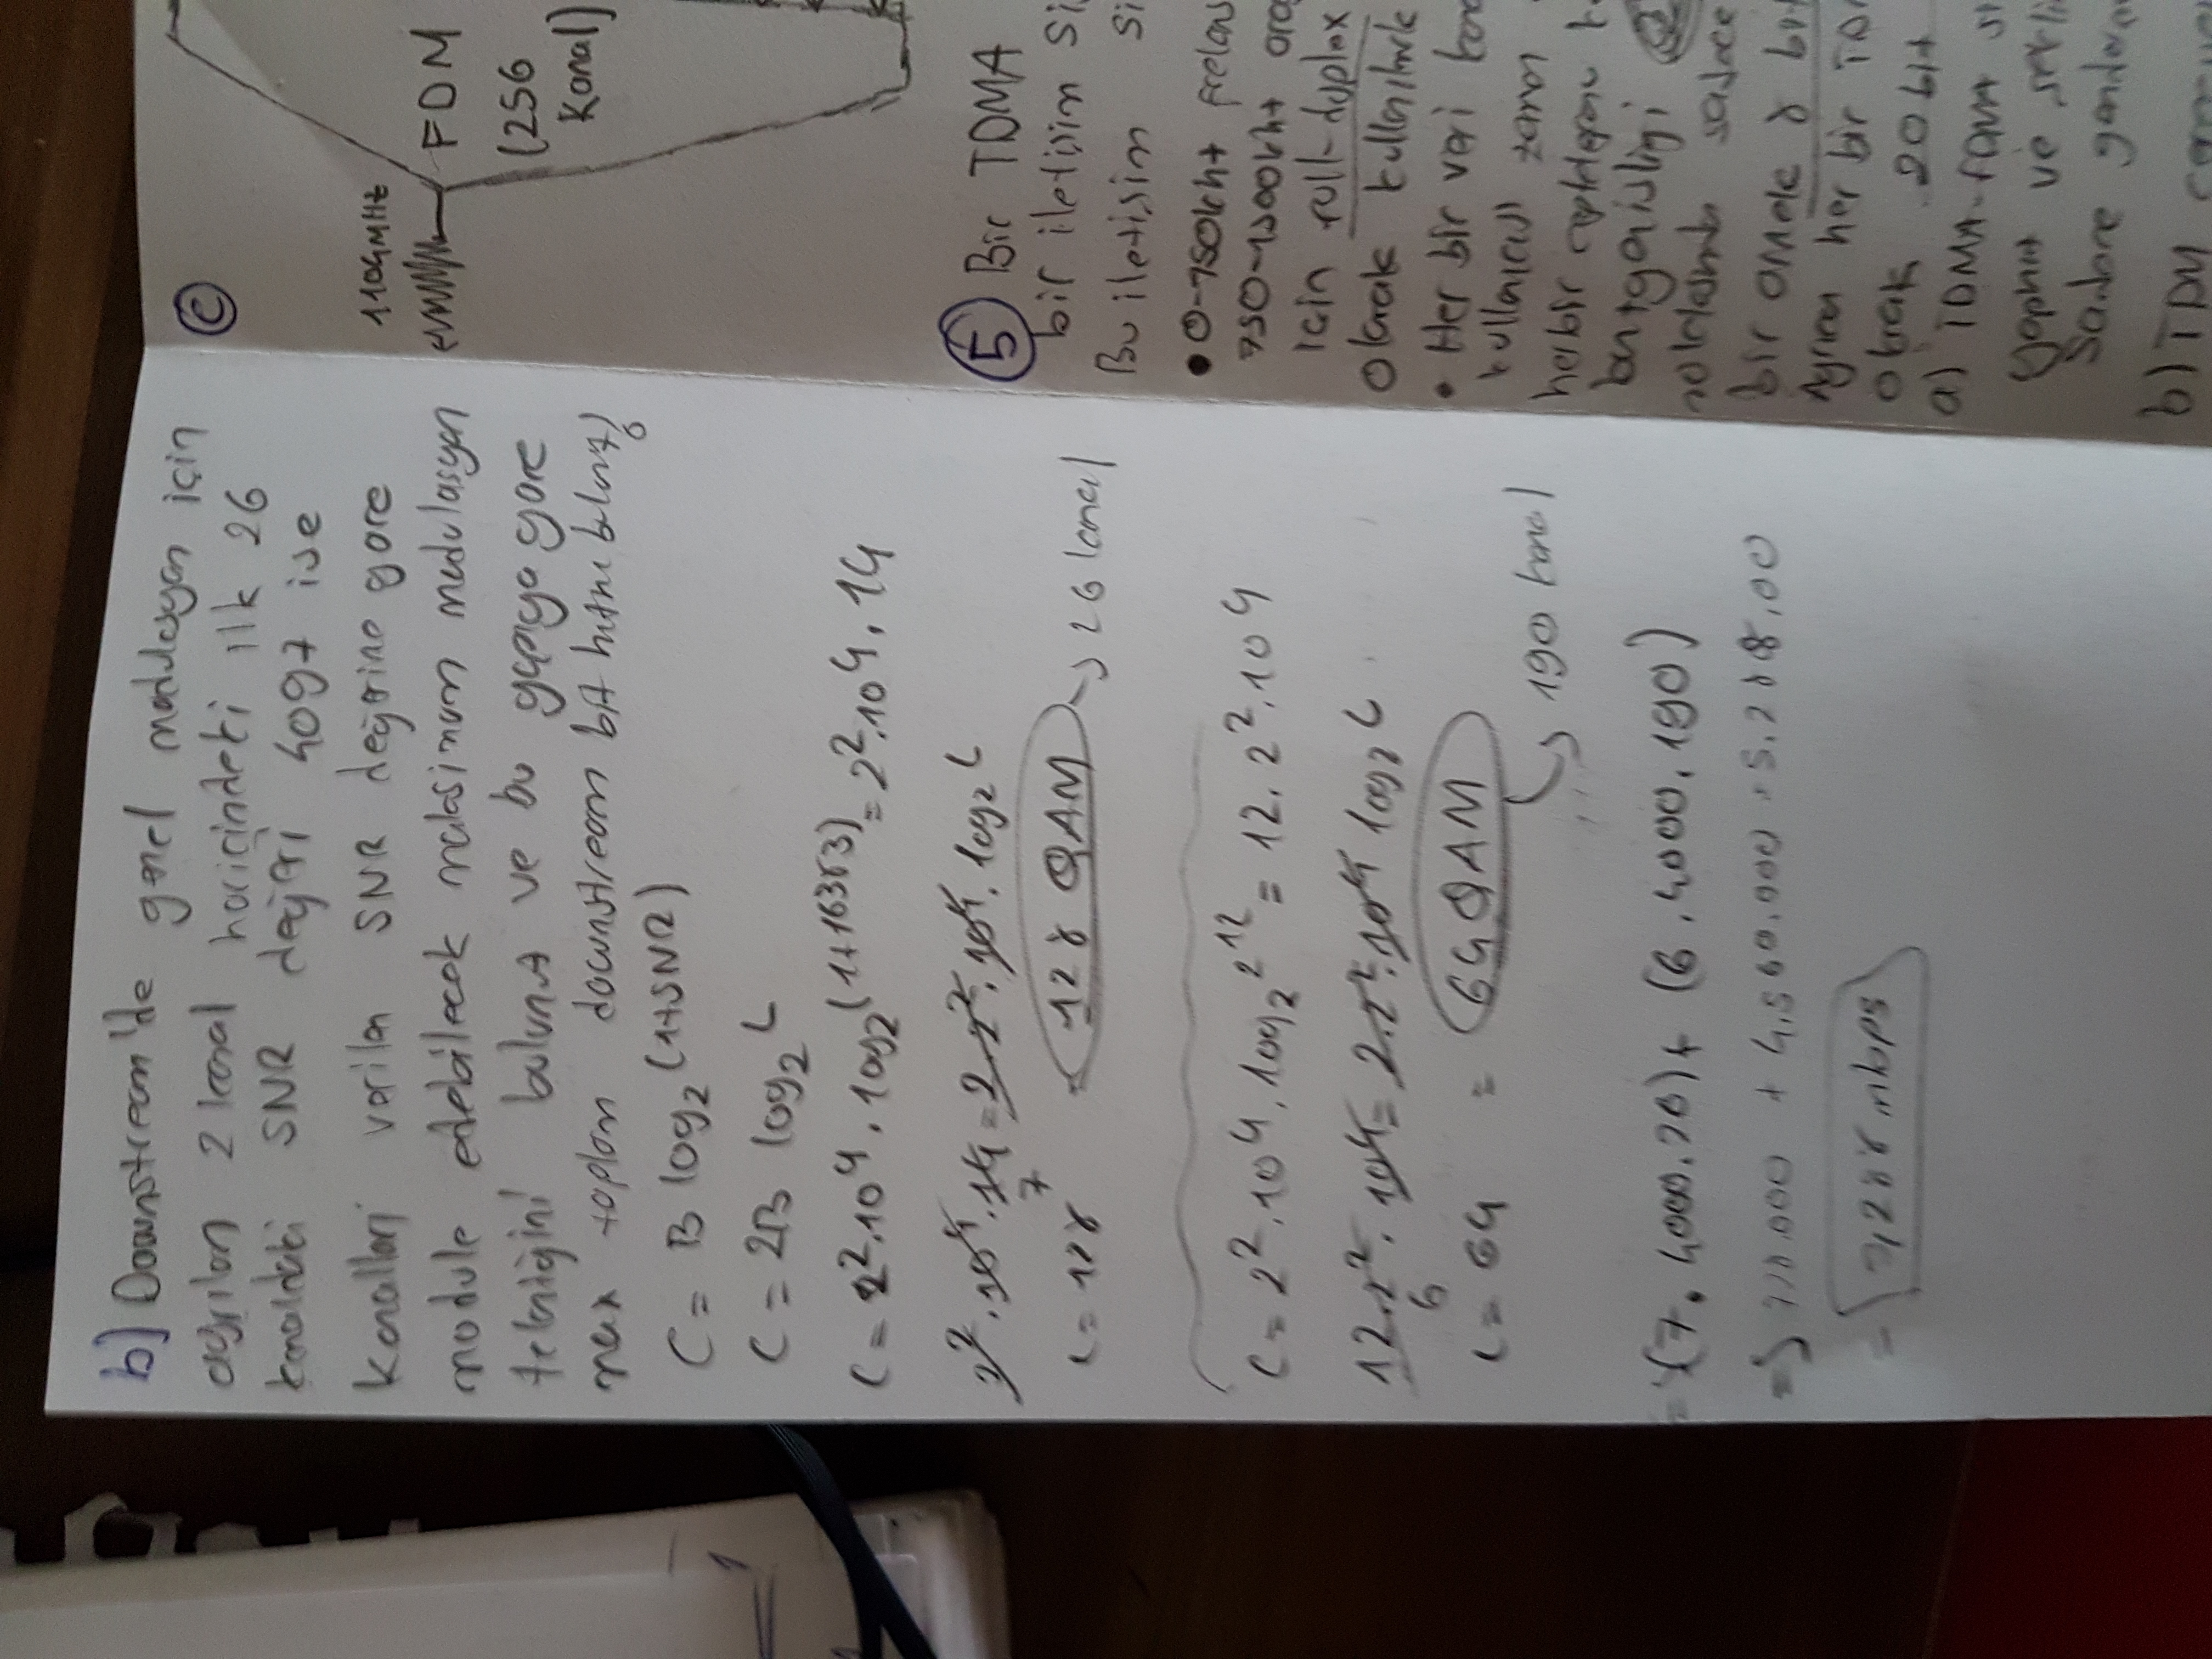 b) Downstream'de genel modulasyon için
ayrılan 2 kanal haricindeki ilk 26
kanaldaki SNR değeri 4097 ise
Kanalları verilen SNR değerine göre
module edebilecek maksimum modulasyon
tekniğini bulunuz ve bu yapıya göre
max toplam downstream bit hızını bulunuz?
C = B log₂(1+SNR)
C = 2B log₂ L
C = 2².10⁴ . log₂(1+16383) = 2².10⁴ . 14
2² . 10⁴ . 14 = 2.2² . 10⁴ . log₂ L
7
L = 128 = 128 QAM → 26 kanal
C = 2².10⁴ . log₂ 2¹² = 12 . 2² . 10⁴
12.2² . 10⁴ = 2.2² . 10⁴ log₂ L
6
L = 64 = 64 QAM
→ 190 kanal
= (7 . 4000 . 26) + (6 . 4000 . 190)
=> 728.000 + 4,560.000 = 5.288,00
= 5,288 mbps
C
1104MHz
FDM
(256
Kanal)
5 Bir TDMA
bir iletişim
Bu iletişim
• 0-750khz frekans
750-1500khz
için full-duplex
olarak
• Her bir veri
kullanıcısı zaman
herbir
bantgenişliği
sadece
bir örnek 8 bit
Ayrıca her bir
olarak 20 bit
a) TDMA-FDMA
yapınız ve
Sadece
b) TDM